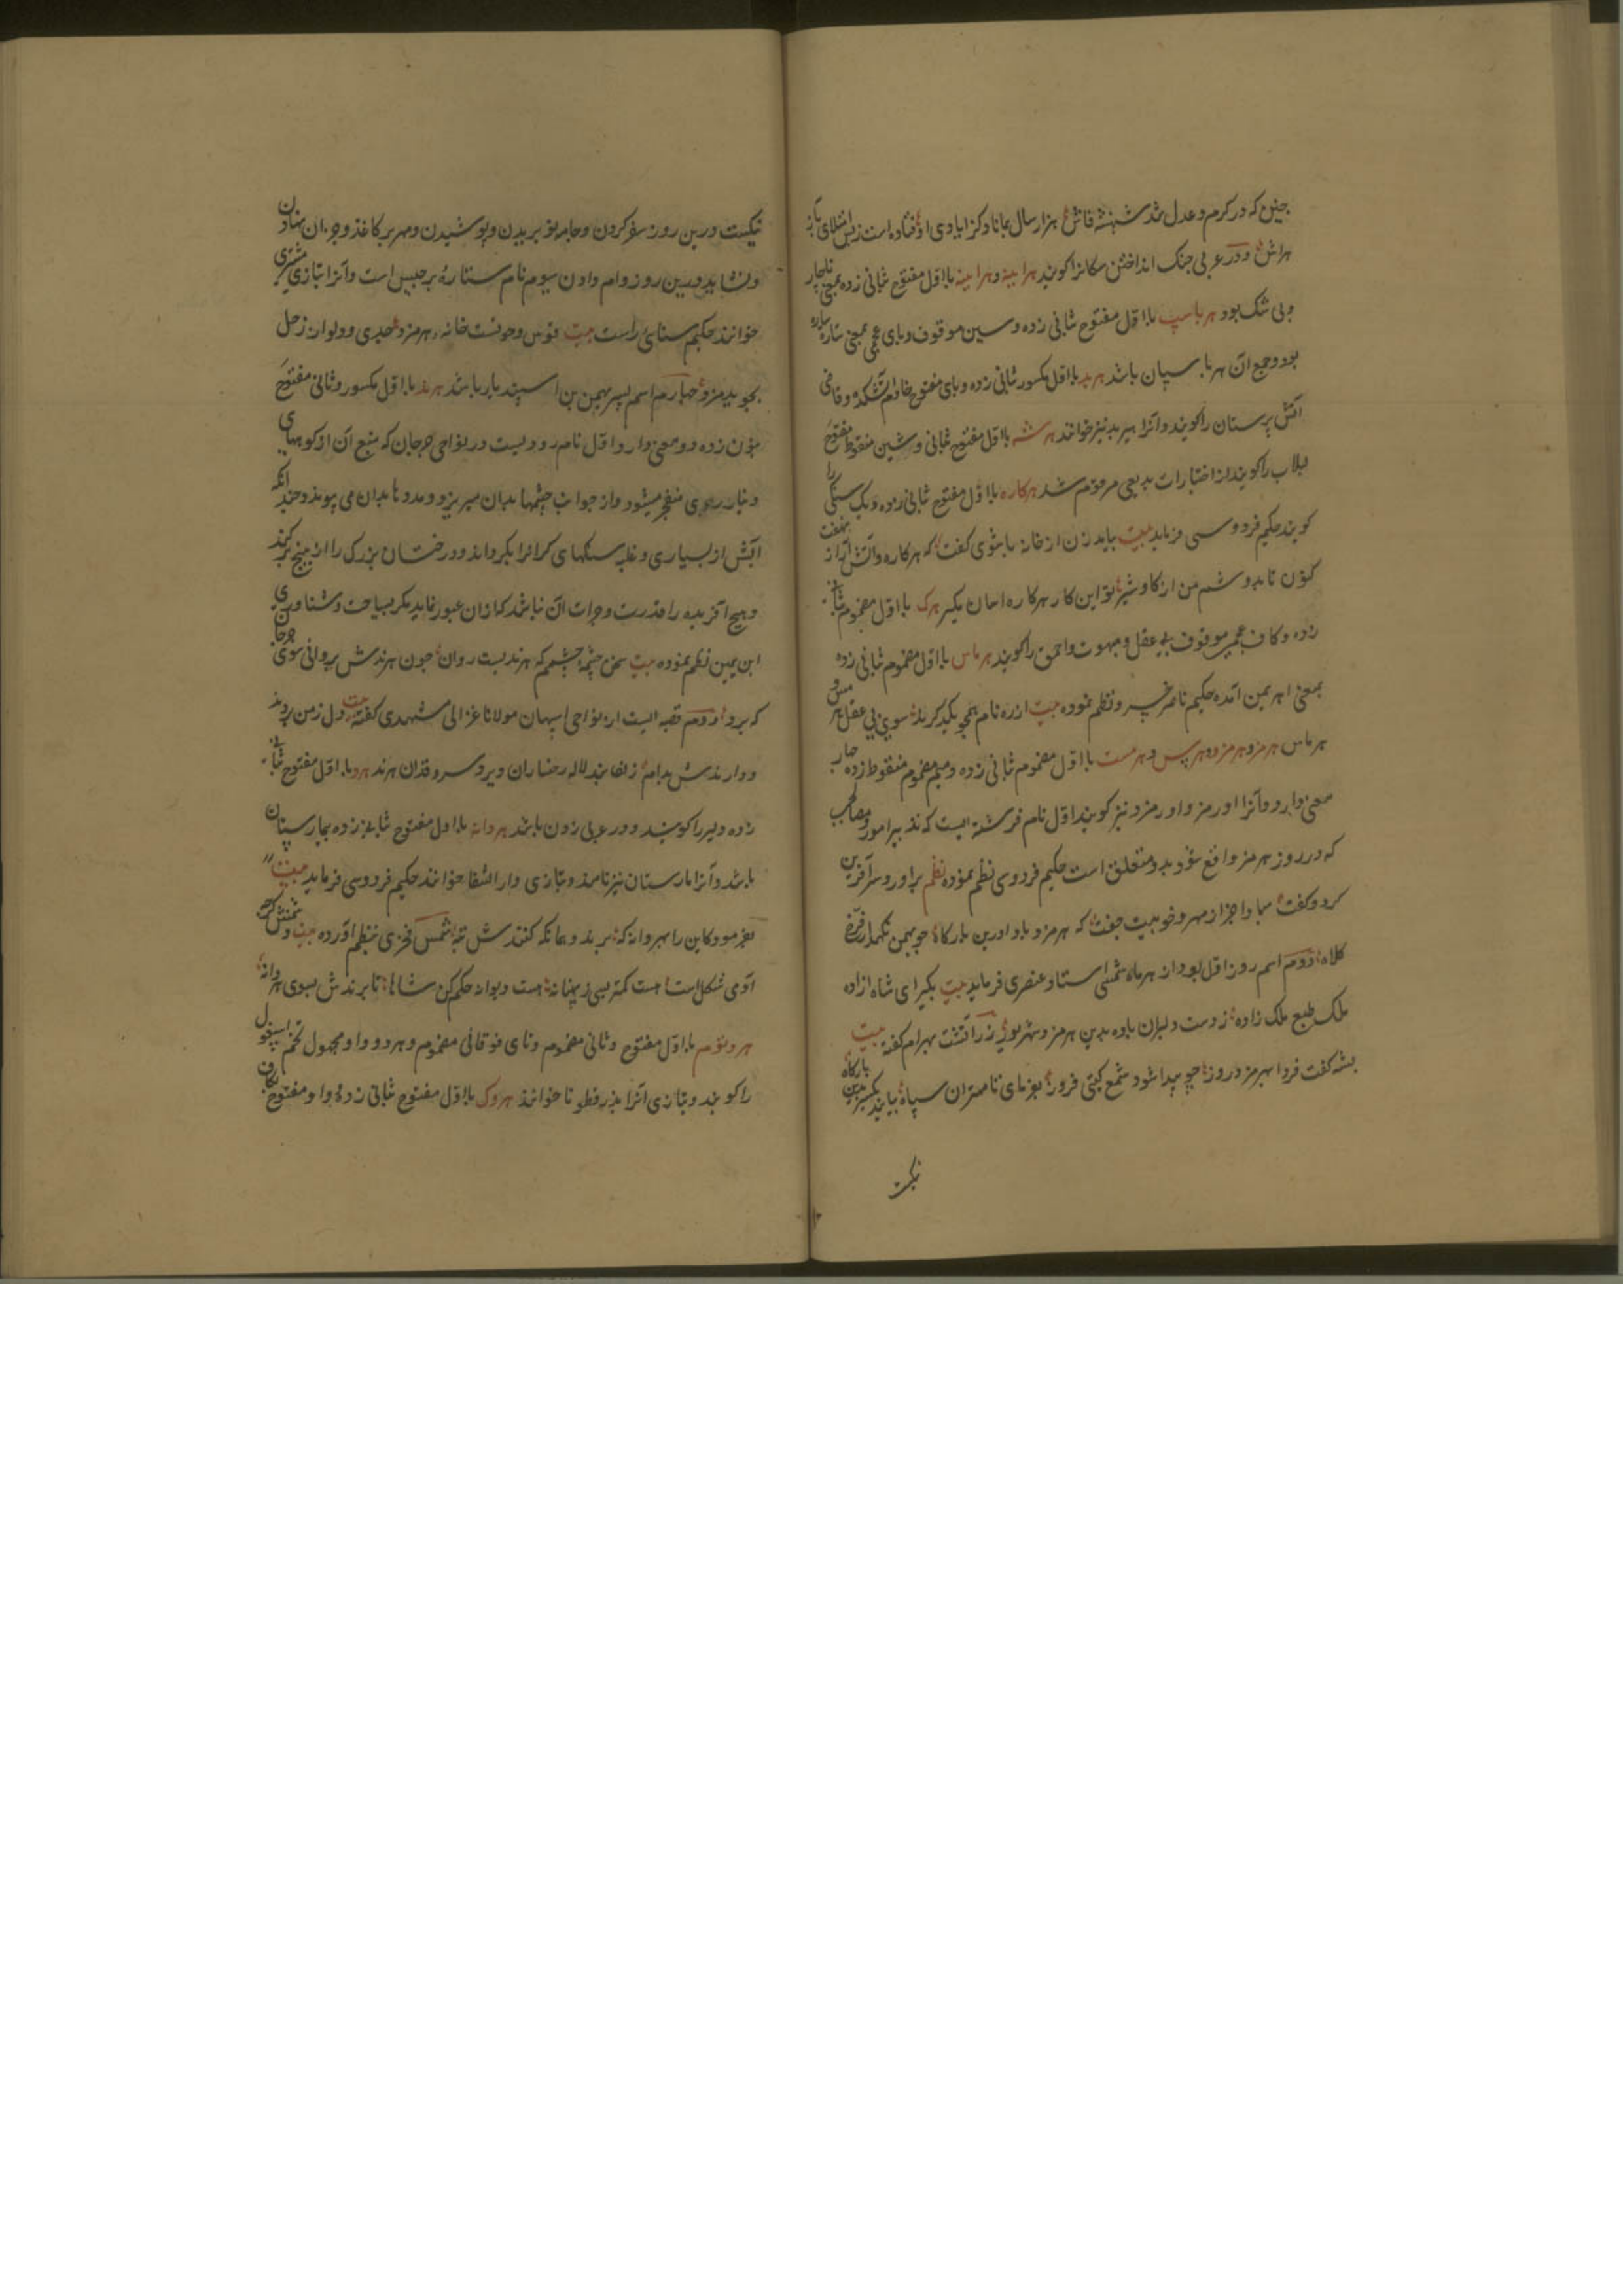 چنین که در کرم و عدل شد شهنشه فاش هزار سال بماناد کز ایادی او فتاده است ز بس امتلای آز
هراش و در عربی جنک انداختن سکانرا کویند هراینه و هرآینه با اول مفتوح ثانی زده بمعنی ناچار
و بی شک بود هرباسپ با اول مفتوح ثانی زده و سین موقوف و بای عجمی بمعنی ستاره سیاره
بود و جمع آن هرباسپان باشد هربد با اول مکسور ثانی زده و بای مفتوح خادم آتشکده و قاضی
آتش پرستان را کویند و آنرا هیربد نیز خوانند هرشه با اول مفتوح ثانی و شین منقوط مفتوح
لبلاب را کویند از اختیارات بدیعی مرقوم شد هرکاره با اول مفتوح ثانی زده دیک سنکی را
کویند حکیم فردوسی فرماید بیت بیامد زن از خانه با شوی کفت که هرکاره و آتش آر از نهفت
کنون تا بدوشم من از کاو شیر تو این کار هرکاره آسان مکیر هرک با اول مضموم ثانی
زده و کاف عجمی موقوف بی عقل و مبهوت و احمق را کویند هرماس با اول مضموم ثانی زده
بمعنی اهریمن آمده حکیم ناصر خسرو نظم نموده بیت از ره نام همچو یکدیکرند سوی بی عقل هرمس و
هرماس هرمز و هرمزد و هرمس و هرمست با اول مضموم ثانی زده و میم مضموم منقوط زده چهار
معنی دارد و آنرا اورمز و اورمزد نیز کویند اول نام فرشته ایست که تدبیر امور و مصالح
که در روز هرمز واقع شود بدو متعلق است حکیم فردوسی نظم نموده نظم براورد سر آفرین
کرد و کفت مبادا بجز از مهر و خوبیت جفت که هرمزد باد اورین بارکاه چو بهمن نکهدار فره
کلاه دوم اسم روز اول بود از هر ماه شمسی استاد عنصری فرماید بیت بکیر ای شاه ازاده
ملک طبع ملک زاده ز دست دلبران باده بدین هرمز و شهریور زراتشت بهرام کفته بیت
بشه کفت فردا بهرمزد روز چو پیدا شود شمع کیتی فروز بفرمای تا مهتران سپاه بیایند یکسر بدین بارکاه
نیکست
نیکست درین روز سفر کردن و جامه نو بریدن و پوشیدن و مهر بر کاغذ و جز ان نهادن
و نشاید درین روز وام دادن سیوم نام ستارهٔ برجیس است و آنرا بتازی مشتری
خوانند حکیم سنائی راست بیت قوس و حوتست خانه هرمز و جدی و دلو از زحل
بجوید مزد چهارم اسم پسر بهمن بن اسپندیار باشد هرند با اول مکسور و ثانی مفتوح
بنون زده دو معنی دارد اول نام رودیست در نواحی جرجان که منبع آن از کوههای
دینار رسوی منفجر میشود و از جوانب چشمها بدان میریزد و مددها بدان می پیوندد و چند آنکه
آبش از بسیاری و غلبه سنکهای کرانرا بکرداند و درختان بزرک را از بیخ برکند
و هیچ آفریده را قدرت و جرات آن نباشد که از ان عبور نماید مکر بسیاحت و شناوری
ابن یمین نظم نموده بیت سخن چشمهٔ چشمم که هرندیست روان چون هرندش بروانی سوی جرجان
که برد دوم قصبه ایست از نواحی اسپهان مولانا غزالی مشهدی کفته بیت دل ز من بردند
و دارندش بدام زلف بند لاله رخساران ویرد سرو قدان هرند هرو با اول مفتوح ثانی
زده دلیر را کویند و در عربی زدن باشد هروانه با اول مفتوح ثانی زده بیمارستان
باشد و آنرا مارستان نیز نامند و بتازی دار الشفا خوانند حکیم فردوسی فرماید بیت
بفرمود کاین را بهروانه که برید و همانکه کنندش تبه شمس فخری بنظم آورده بیت دشمنش کرچه
آدمی شکل است هست کمتر بسی ز پنهانه هست دیوانه حکم کن شاها تا برندش بسوی هروانه
هروتوم با اول مفتوح و ثانی مضموم و تای فوقانی مضموم و هر دو واو مجهول تخم اسپغول
را کویند و بتازی آنرا بذر قطونا خوانند هروک با اول مفتوح ثانی زده و واو مفتوح بکاف